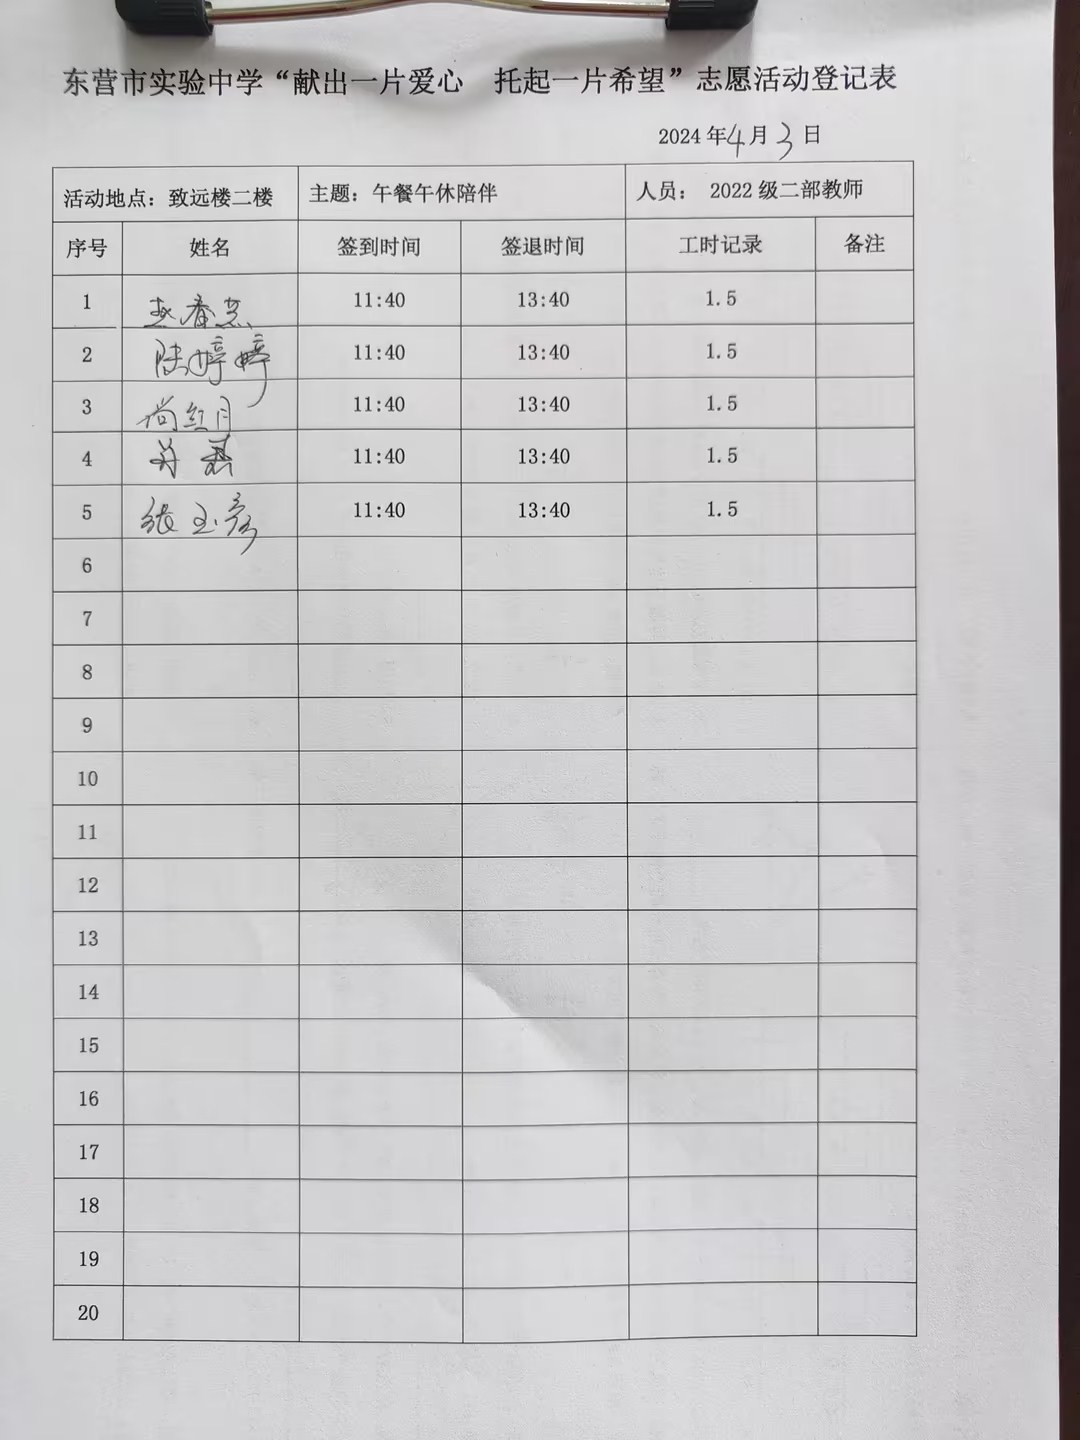 东营市实验中学“献出一片爱心 托起一片希望”志愿活动登记表
2024 年 4 月 3 日
活动地点：致远楼二楼 主题：午餐午休陪伴 人员： 2022 级二部教师
序号 姓名 签到时间 签退时间 工时记录 备注
1 11:40 13:40 1.5
2 陆婷婷 11:40 13:40 1.5
3 尚红月 11:40 13:40 1.5
4 11:40 13:40 1.5
5 张玉彦 11:40 13:40 1.5
6
7
8
9
10
11
12
13
14
15
16
17
18
19
20